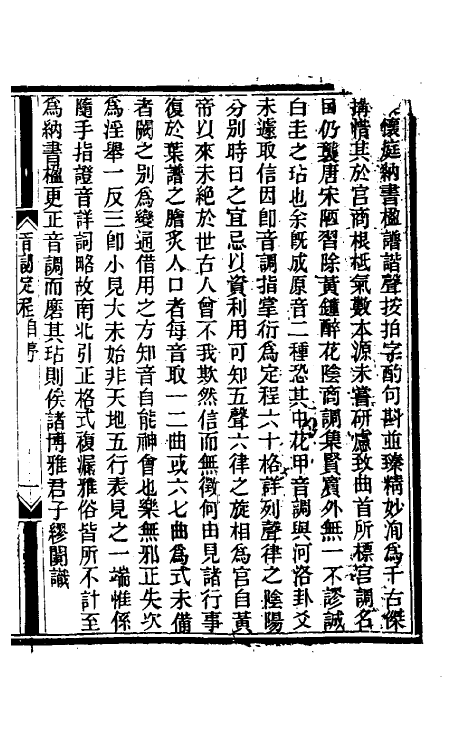 懷庭納書楹譜諧聲按拍字酌句斟並臻精妙洵爲千古傑
搆惜其於宮商根柢氣數本源未嘗研慮致曲首所標宮調名
目仍襲唐宋陋習除黃鐘醉花陰商調集賢賓外無一不謬誠
白圭之玷也余旣成原音二種恐其中花甲音調與河洛卦爻
未遽取信因卽音調指掌衍爲定程六十格詳列聲律之陰陽
分別時日之宜忌以資利用可知五聲六律之旋相爲宮自黃
帝以來未絕於世古人曾不我欺然信而無徵何由見諸行事
復於葉譜之膾炙人口者每音取一二曲或六七曲爲式未備
者闕之別爲變通借用之方知音自能神會也樂無邪正失次
爲淫舉一反三卽小見大未始非天地五行表見之一端惟係
隨手指證音詳詞略故南北引正格式複漏雅俗皆所不計至
爲納書楹更正音調而磨其玷則俟諸博雅君子繆闐識
音調定程自序